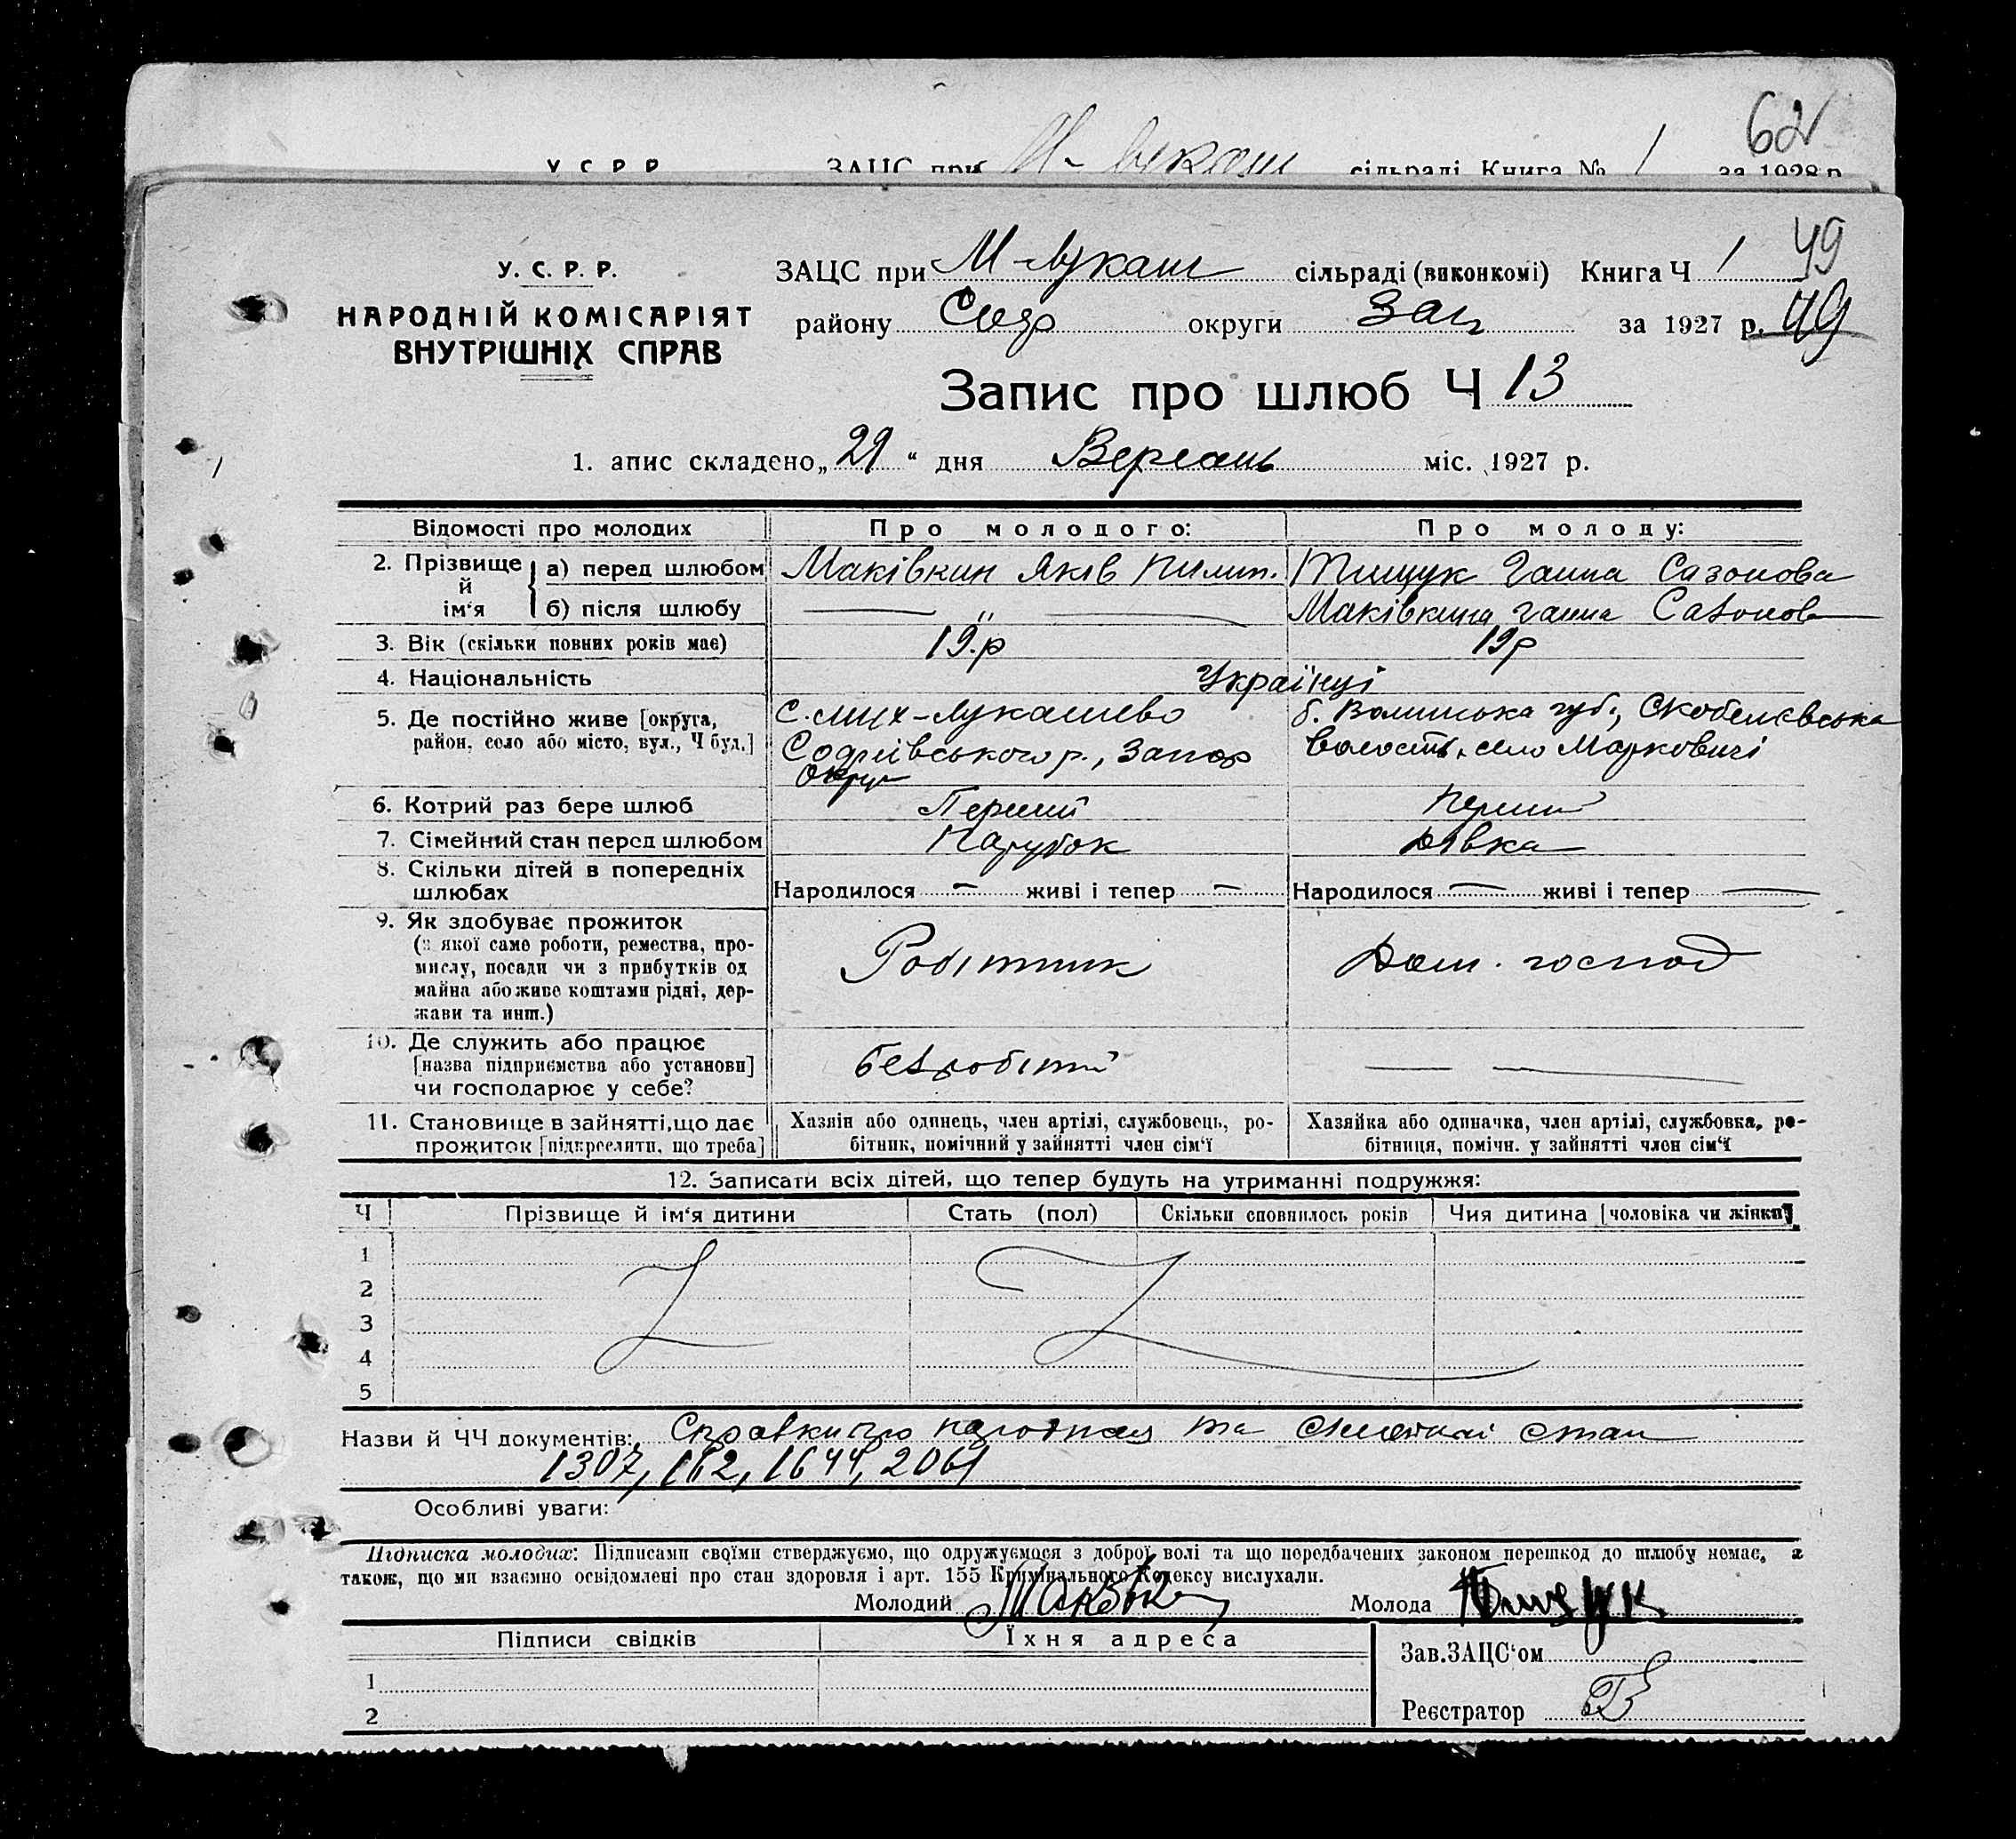 62
У. С. Р. Р. ЗАЦС при М-Лукаш сільраді Книга № 1 за 1928 р.
У. С. Р. Р. ЗАЦС при М-Лукаш сільраді (виконкомі) Книга Ч 1 49
НАРОДНІЙ КОМІСАРІЯТ
ВНУТРІШНІХ СПРАВ
району Софі округи Зап за 1927 р. 49
Запис про шлюб Ч 13
1. апис складено „29“ дня Вересань міс. 1927 р.
Відомості про молодих Про молодого: Про молоду:
2. Прізвище й ім‘я а) перед шлюбом Маківкин Яків Пилип. Тищук Ганна Сазонова
б) після шлюбу — „ — Маківкина Ганна Сазонов
3. Вік (скільки повних років має) 19.р 19р
4. Національність Українці
5. Де постійно живе [округа, район, село або місто, вул., Ч буд.]
с. Мих-Лукашево
Софиївського р., Запор
Округ
б. Волинська губ., Скобелєвська
волость, село Марковичі
6. Котрий раз бере шлюб Перший Перший
7. Сімейний стан перед шлюбом Парубок Дівка
8. Скільки дітей в попередніх шлюбах Народилося — живі і тепер — Народилося — живі і тепер —
9. Як здобуває прожиток
(з якої саме роботи, ремества, про-
мислу, посади чи з прибутків од
майна або живе коштами рідні, дер-
жави та инш.)
Робітник Дом. господ
10. Де служить або працює
[назва підприємства або установи]
чи господарює у себе?
безробітний — —
11. Становище в зайнятті, що дає
прожиток [підкреслити, що треба]
Хазяїн або одинець, член артілі, службовець, ро-
бітник, помічний у зайнятті член сім‘ї
Хазяйка або одиначка, член артілі, службовка, ро-
бітниця, помічн. у зайнятті член сім‘ї
12. Записати всіх дітей, що тепер будуть на утриманні подружжя:
Ч Прізвище й ім‘я дитини Стать (пол) Скільки сповнилось років Чия дитина [чоловіка чи жінки]
1
2
3
4
5
Назви й ЧЧ документів: Справки про народження та сімейний стан
1307, 162, 1644, 2061
Особливі уваги:
Підписка молодих: Підписами своїми стверджуємо, що одружуємося з доброї волі та що передбачених законом перешкод до шлюбу немає, а
також, що ми взаємно освідомлені про стан здоровля і арт. 155 Кримінального Кодексу вислухали.
Молодий Маківк Молода Тищук
Підписи свідків Їхня адреса Зав. ЗАЦС‘ом
1
2 Реєстратор